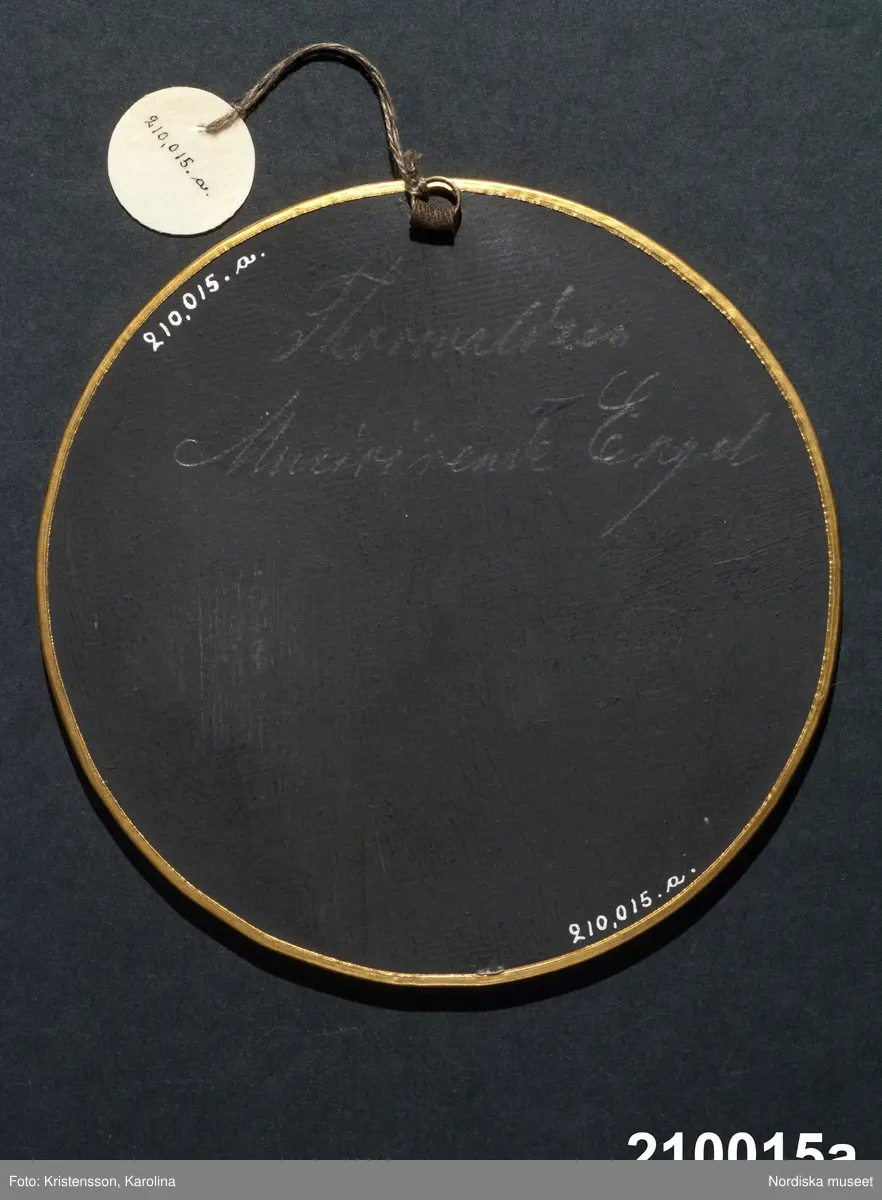 210,015. a.
210,015. a.
Thorvaldsen
Musicirende Engel
210,015. a.
210015a
Foto: Kristensson, Karolina
Nordiska museet